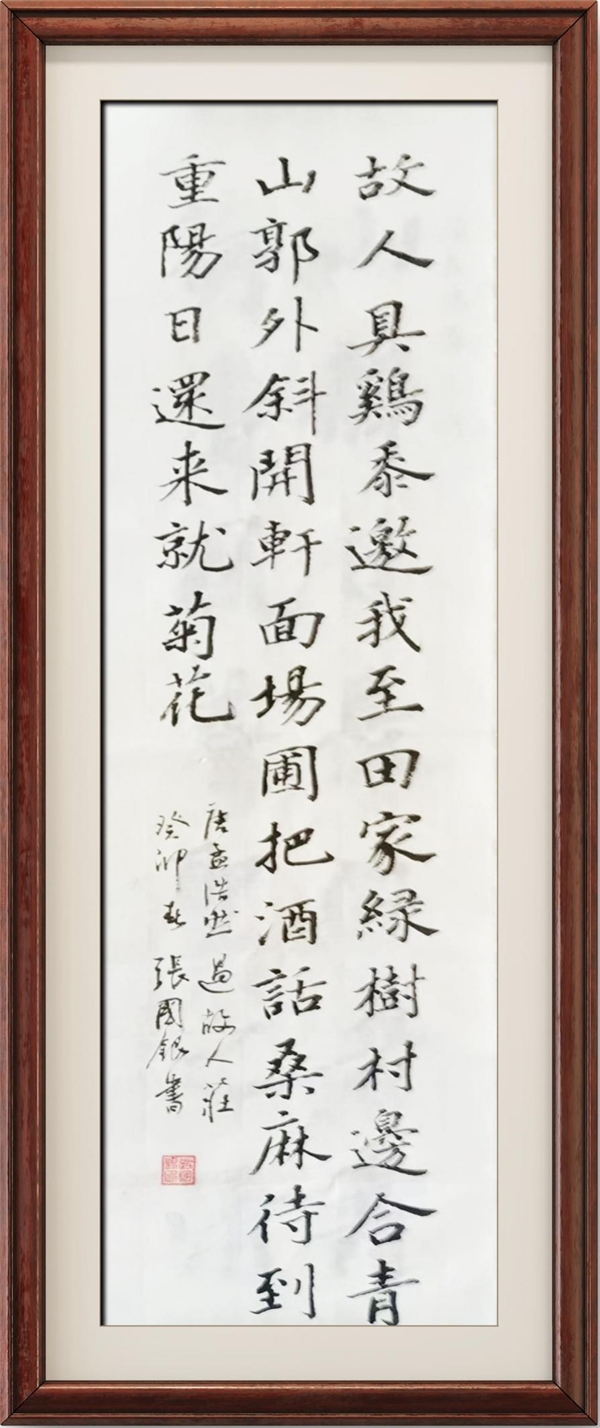 故人具鷄黍邀我至田家緑樹村邊合青
山郭外斜開軒面場圃把酒話桑麻待到
重陽日還来就菊花
唐孟浩然過故人莊
癸卯春張國銀書